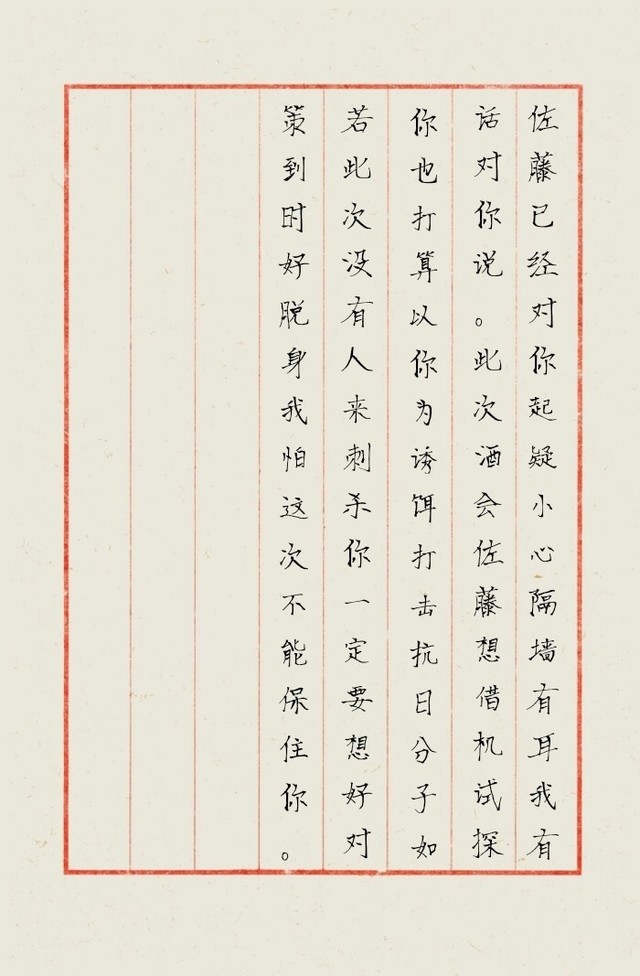 佐藤已经对你起疑小心隔墙有耳我有
话对你说。此次酒会佐藤想借机试探
你也打算以你为诱饵打击抗日分子如
若此次没有人来刺杀你一定要想好对
策到时好脱身我怕这次不能保住你。